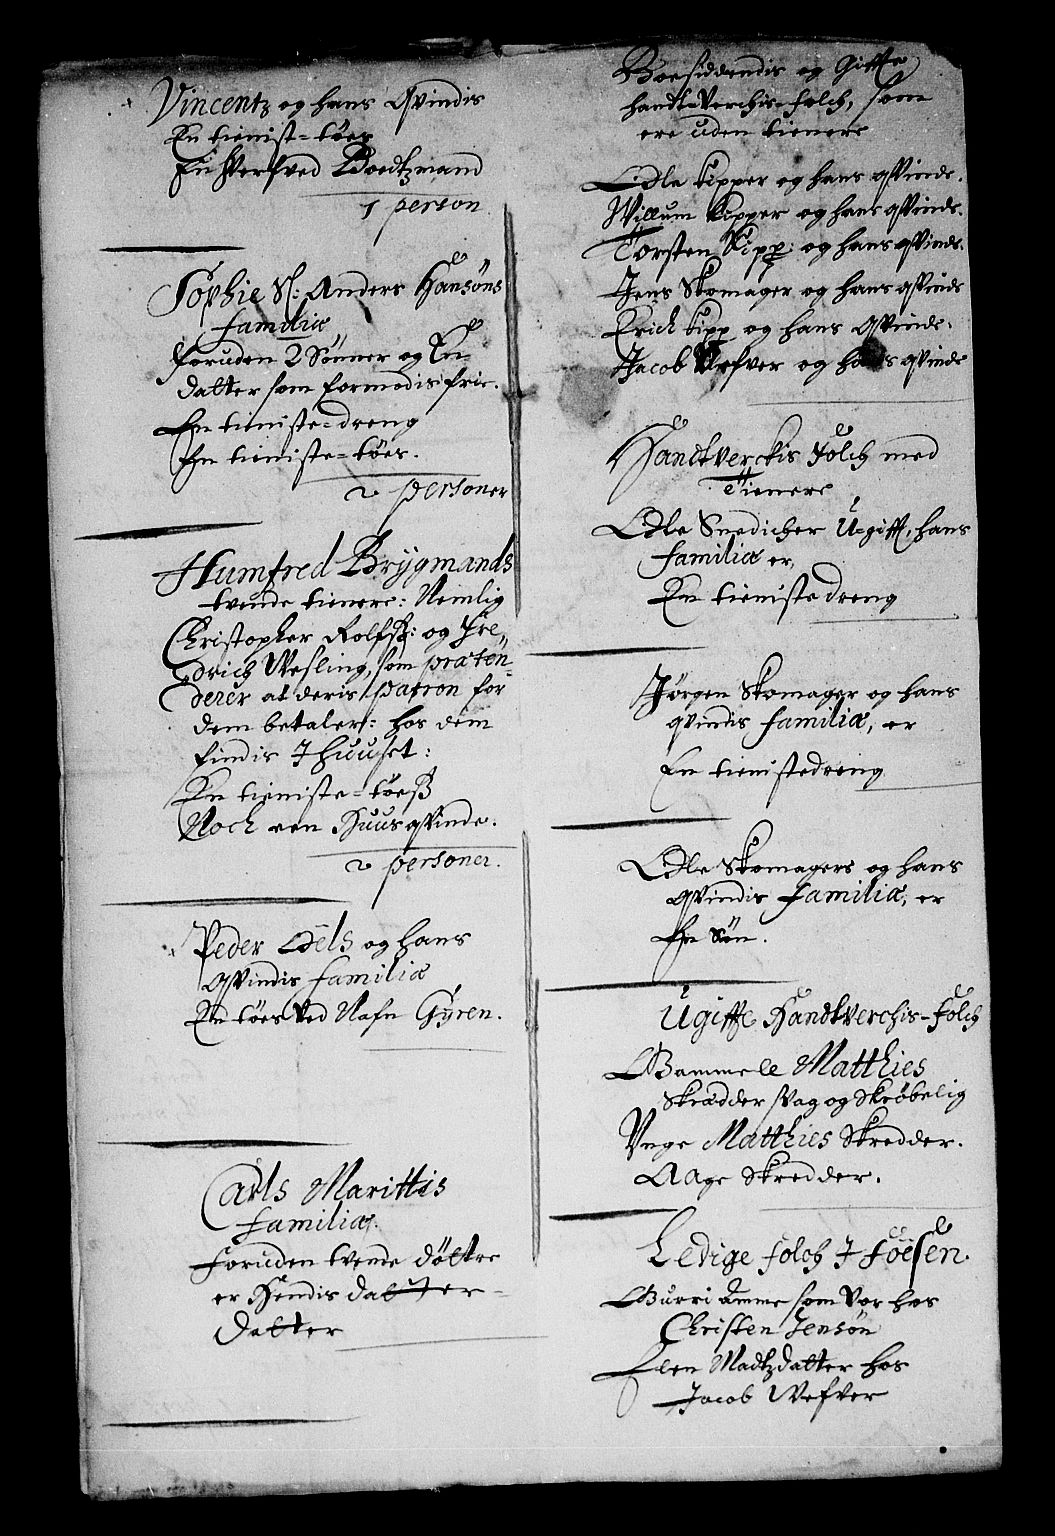 Vincentz og hans Qvindis
En tieniste-töes
En Hverfved Boedtzmand
1 person
Sophie Sl: Anders Hansøns
familiæ
foruden 2 Sønner og En
datter som formodis frie.
En tieniste-dreng
En tieniste-töes.
2 personer
Humfred Brÿgmands
tvende tienere: Nemlig
Christopher Rolfsß: og Fre„
drich Wesling, som præten-
derer at deris patron for
dem betaler: hos dem
findis I huuset:
En tieniste-töeß
Noch een Huusqvinde.
2 personer.
Peder Oels og hans
Qvindis familiæ
En töes ved Nafn Gÿren.
Carls Marittis
familiæ.
foruden tvende döttre
er Hendis datter-
datter
Boesiddendis og Giffte
handtverchis-folch, som
ere uden tienere
Odle kipper og hans qvinde.
Willum Kipper og hans qvinde.
Torsten Kipp: og hans qvinde.
Jens Skomager og hans qvinde
Erich kipp og hans Qvinde.
Jacob Wefver og hans qvinde
Handtverckis Folch med
Tienere
Odle Snedicher Ugifft, hans
familiæ er,
En tienistedreng
Jørgen Skomager og hans
qvindis familiæ, er
En tienistedreng
Odle Skomagers og hans
Qvindis familiæ, er
En Søn.
Ugiffte Handtverchis-Folch
Gammele Matthies
Skrædder svag og Skröbelig
Unge Matthies Skredder.
Aage Skredder.
Ledige folch I Föesen
Gurri amme som var hos
Christen Jensøn
Elen Madtzdatter hos
Jacob Wefver